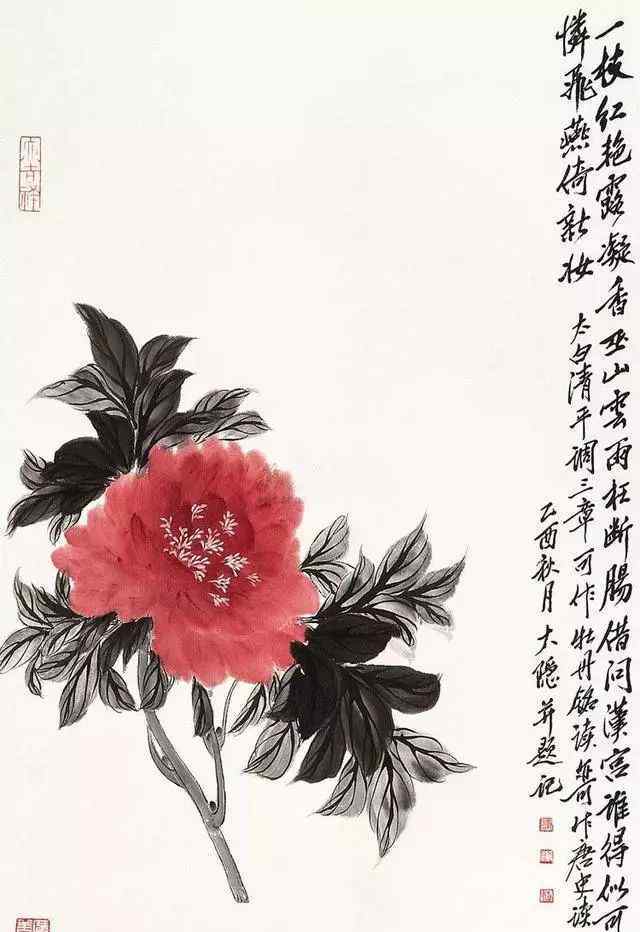 一枝红艳露凝香巫山雲雨枉断腸借问漢宫谁得似可
憐飛燕倚新妆 太白清平调三章可作牡丹铭读亦可作唐史读
乙酉秋月大隐并题记
大吉祥